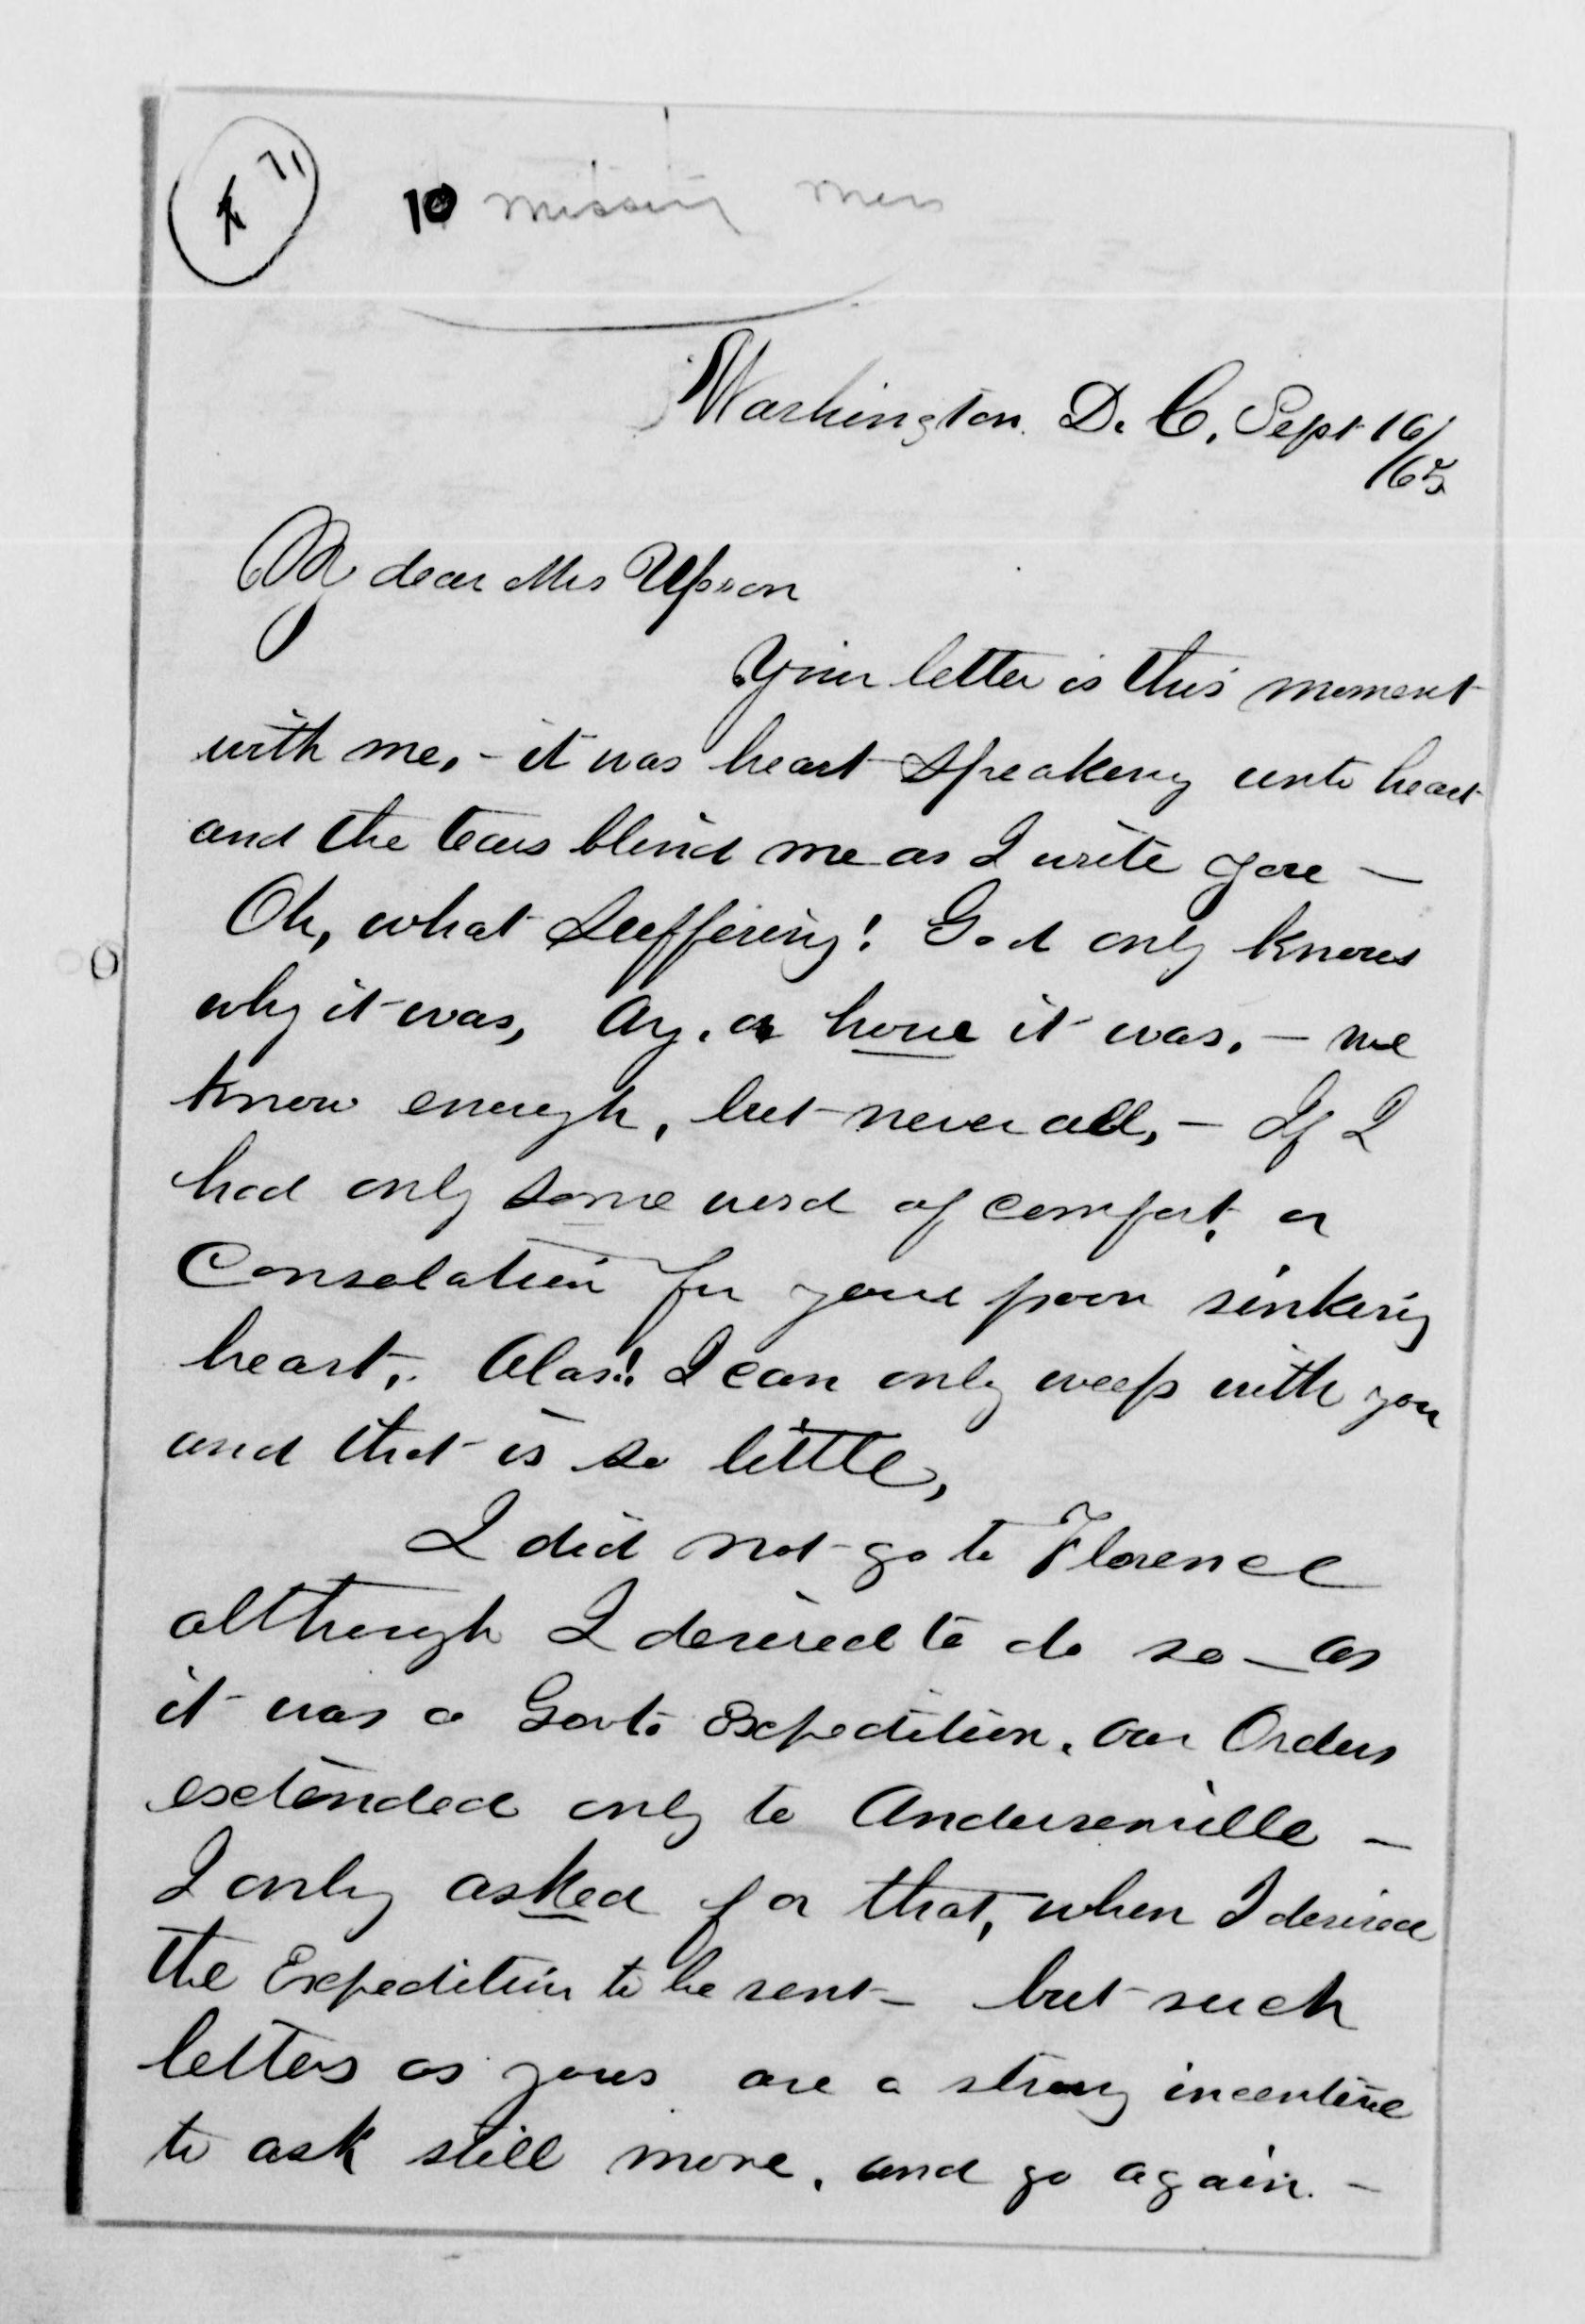 71
10 missing men
Washington. D. C. Sept 16/
/65
My dear Mrs Upson
Your letter is this moment
with me, - it was heart speaking unto heart
and the tears blind me as I write you —
Oh, what suffering! God only knows
why it was, Ay, or how it was, — we
know enough, but never all, — If I
had only some word of comfort, or
Consolation for your poor sinking
heart,. Alas!! I can only weep with you
and that is so little,
I did not go to Florence
although I desired to do so — as
it was a Govt. Expedition, our Orders
extended only to Andersonville —
I only asked for that, when I desired
the Expedition to be sent — but such
letters as yours are a strong incentive
to ask still more, and go again. —